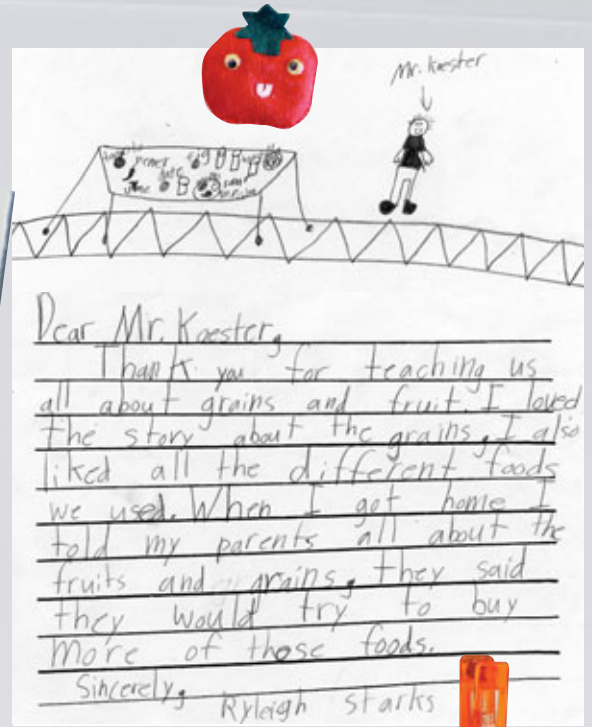 Mr. Koester
Dear Mr. Koester,
Thank you for teaching us
all about grains and fruit. I loved
the story about the grains, I also
liked all the different foods
we used. When I got home I
told my parents all about the
fruits and grains, they said
they would try to buy
more of those foods.
Sincerely,
Ryleigh Starks